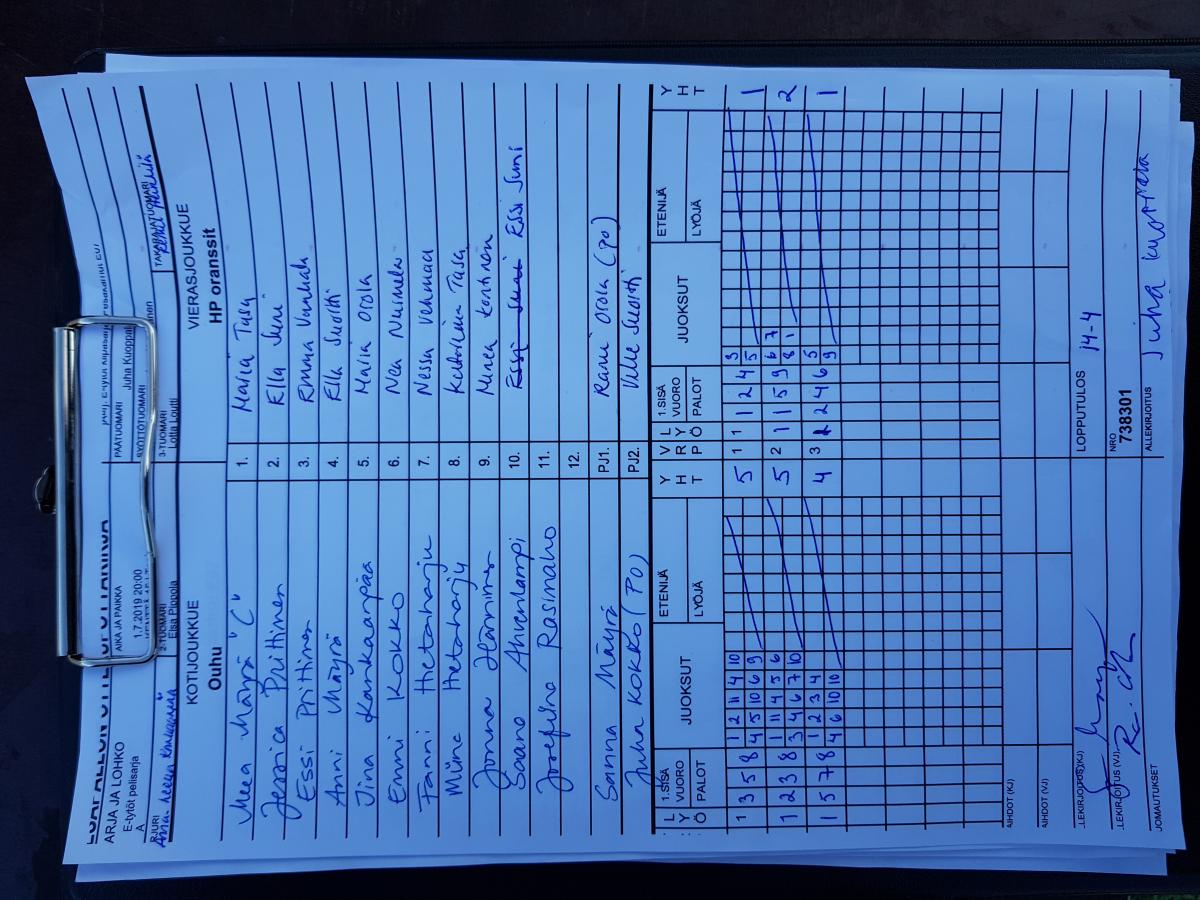 ARJA JA LOHKO
E-tytöt pelisarja
A
AIKA JA PAIKKA
1.7.2019 20:00
PÄÄTUOMARI
Juha Kuoppal
SYÖTTÖTUOMARI
2-TUOMARI
Elsa Pippola
3-TUOMARI
Lotta Loutti
TAKARAJATUOMARI
KOTIJOUKKUE VIERASJOUKKUE
Ouhu HP oranssit
Meea Mäyrä "C" 1. Maria Tasa
Jessica Piittinen 2. Ella Sumi
Essi Piittinen 3. Emma
Anni Mäyrä 4. Ella Suortti
Iina Kankaanpää 5. Maria Orola
Emmi Kokko 6. Nea
Fanni Hietaharju 7. Nessa Vehmaa
Minea Hietaharju 8. Tasa
Jonna Hänninen 9. Minea Kontinen
Saana Ahvenlampi 10. Essi Sumi Essi Sumi
Josefiina Rasinaho 11.
12.
Sanna Mäyrä PJ1. Rami Orola (PO)
Juha Kokko (PO) PJ2. Ville Suortti
L Y Ö 1.SISÄ VUORO PALOT JUOKSUT ETENIJÄ LYÖJÄ Y H T V R P L Y Ö 1.SISÄ VUORO PALOT JUOKSUT ETENIJÄ LYÖJÄ Y H T
1 2 11 4 10 3
1 3 5 8 4 5 10 6 9 5 1 1 1 2 4 5 1
1 11 4 5 6 6 7
1 2 3 8 3 4 6 7 10 5 2 1 1 5 9 8 1 2
1 2 3 4 5
1 5 7 8 4 6 10 10 4 3 2 4 6 9 1
AIHDOT (KJ)
AIHDOT (VJ)
LLEKIRJOITUS (KJ) LOPPUTULOS 14-4
LLEKIRJOITUS (VJ) NRO
738301
JOMAUTUKSET ALLEKIRJOITUS Juha